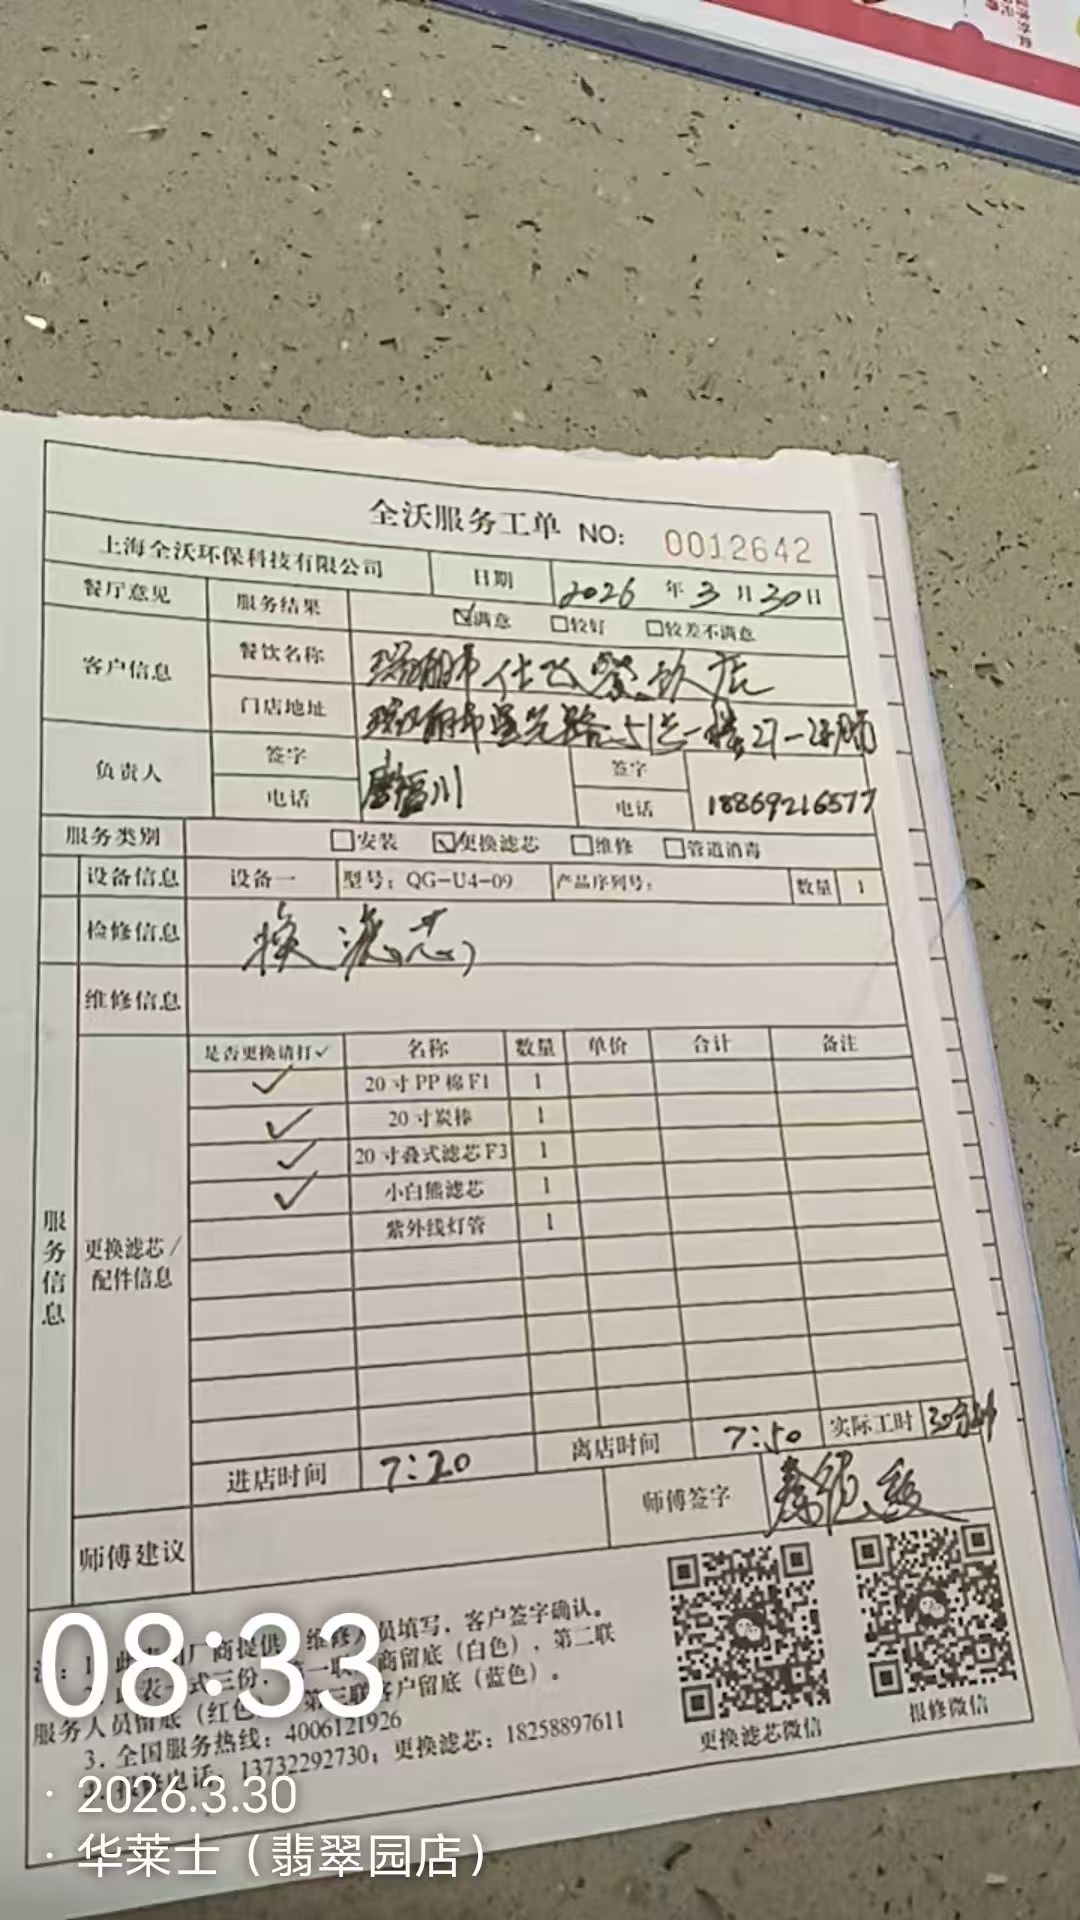 全沃服务工单 NO: 0012642
上海全沃环保科技有限公司 日期 2026年3月30日
餐厅意见 服务结果 ☑满意 □较好 □较差不满意
客户信息 餐饮名称 瑞丽市仕飞餐饮店
门店地址 瑞丽市 路 一楼
负责人 签字 签字
电话 电话 18869216577
服务类别 □安装 ☑更换滤芯 □维修 □管道消毒
设备信息 设备一 型号：QG-U4-09 产品序列号： 数量 1
检修信息 换滤芯
维修信息
服务信息
更换滤芯/配件信息
是否更换请打✓ 名称 数量 单价 合计 备注
✓ 20寸PP棉F1 1
✓ 20寸炭棒 1
✓ 20寸叠式滤芯F3 1
✓ 小白熊滤芯 1
紫外线灯管 1
进店时间 7:20 离店时间 7:50 实际工时 30分钟
师傅建议 师傅签字
厂商提供 维修人员填写，客户签字确认。
表一式三份，第一联 商留底（白色），第二联
服务人员留底（红色） 第三联客户留底（蓝色）。
3. 全国服务热线：4006121926
报修电话：13732292730；更换滤芯：18258897611
更换滤芯微信
报修微信
08:33
· 2026.3.30
· 华莱士（翡翠园店）